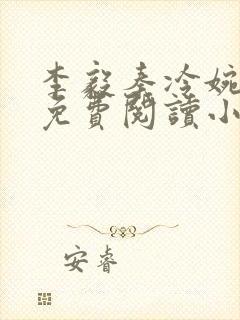 李毅秦冷婉
免費閱讀小
安睿